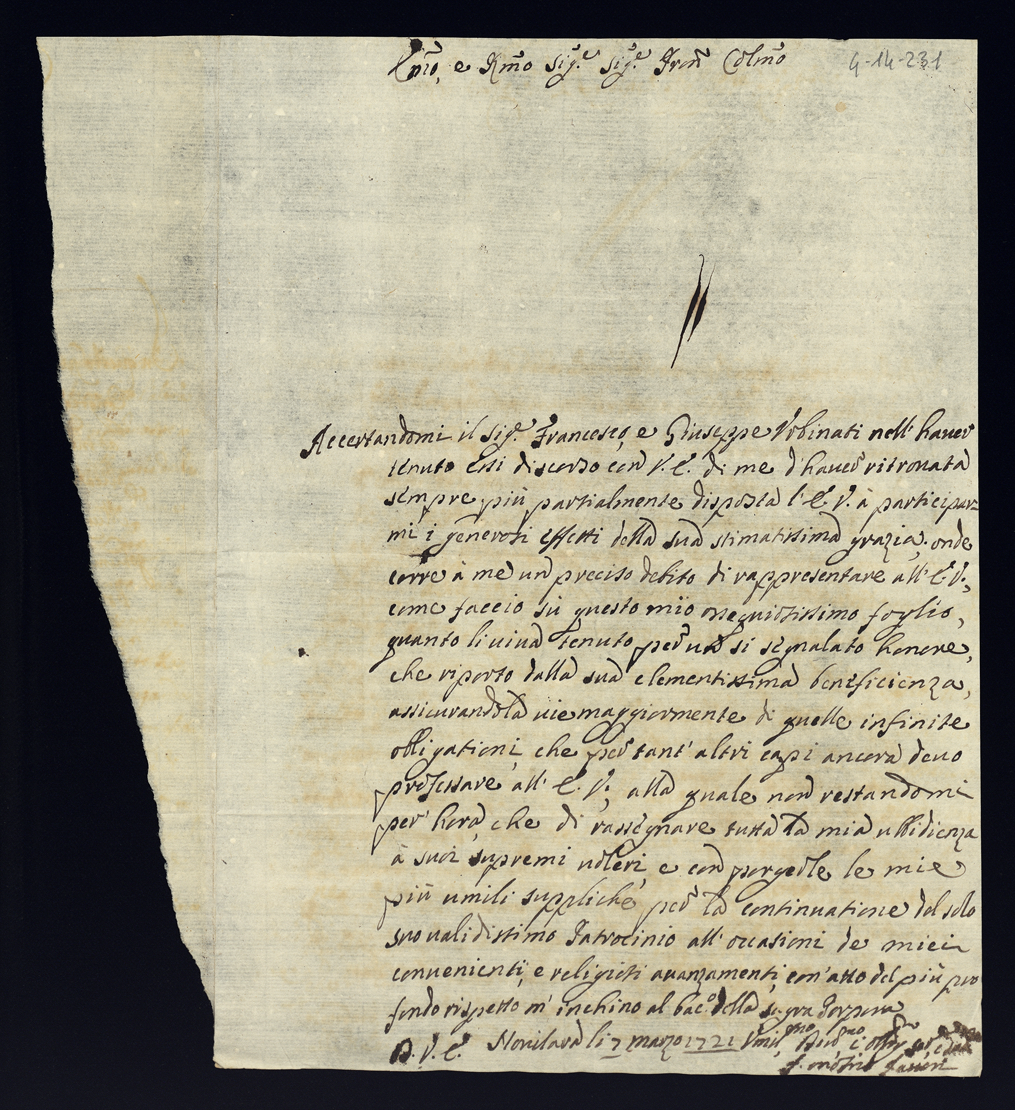 e Rmo Sig.e Sig.e Pron Colmo
4-14-231
Accertandomi il Sig.e Francesco, e Giuseppe Urbinati nell'haver
tenuto essi discorso con V. E. di me d'haver ritrovata
sempre più partialmente disposta l'E. V. à participar-
mi i generosi effetti della sua stimatissima grazia, onde
corre à me un preciso debito di rappresentare all'E. V.,
come faccio sù questo mio ossequiosissimo foglio,
quanto li viva tenuto per un si segnalato honore,
che riporto dalla sua clementissima beneficienza,
assicurandola vie maggiormente di quelle infinite
obligationi, che per tant'altri capi ancora devo
professare all'E. V., alla quale non restandomi
per hora, che di rassegnare tutta la mia ubbidienza
à suoi supremi voleri, e con porgerle le mie
più umili suppliche per la continuatione del solo
suo validissimo Patrocinio all'occasioni de miei
convenienti, e religiosi avanzamenti, con atto del più pro
fondo rispetto m'inchino al bac.o della sagra Porpora
D. V. E. Novilara li 7 marzo 1721 Umil.mo Dev.mo
f.